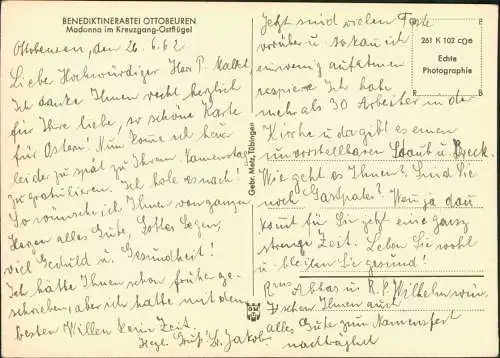 BENEDIKTINERABTEI OTTOBEUREN
Madonna im Kreuzgang-Ostflügel
Ottobeuren, den 26.6.62
Liebe Hochwürdiger Herr P.
Ich danke Ihnen recht herzlich
für Ihre liebe, so schöne Karte
für Ostern! Nun komme ich heuer
leider zu spät zu Ihrem Namenstag
zu gratulieren. Ich hole es nach!
So wünsche ich Ihnen von ganzem
Herzen alles Gute, Gottes Segen,
viel Geduld u. Gesundheit!
Ich hätte Ihnen schon früher ge-
schrieben, aber ich hatte mit dem
besten Willen keine Zeit.
Herzl. Gruß Jakob.
Gebr. Metz, Tübingen
Jetzt sind vielen Feste
vorüber u. so kann ich
ein wenig aufatmen
Ich habe
mehr als 30 Arbeiter in der
Kirche u. da gibt es einen
unvorstellbaren Staub u. Dreck.
Wie geht es Ihnen? Sind Sie
noch Gastpater? Wenn ja dann
kommt für Sie jetzt eine ganz
strenge Zeit. Leben Sie wohl
u. bleiben Sie gesund!
Rmus Abbas u. R. P. Wilhelm wün-
schen Ihnen auch
alles Gute zum Namensfest
nachträglich
261 K 102 coe
Echte
Photographie
R B